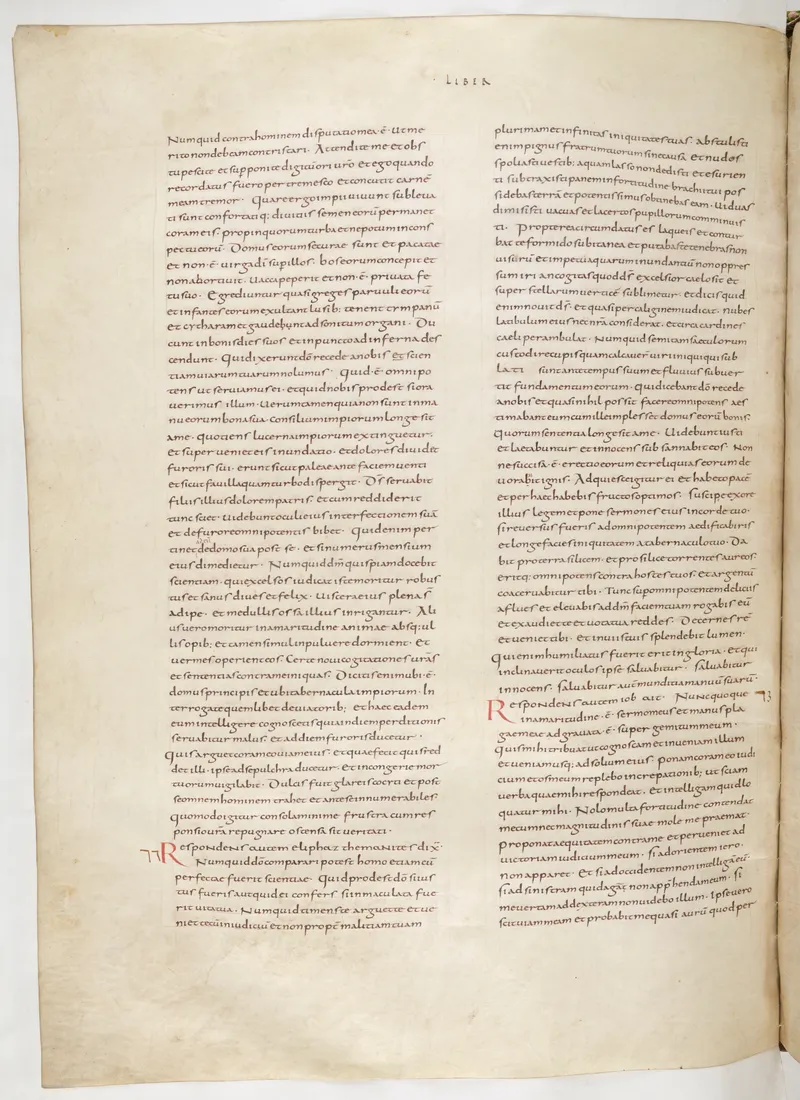 · LIBER
Numquid contra hominem disputatio mea ē· Ut me
rito non debeam contristari· Attendite me et obs
tupescite et supponite digitū ori uro Et ego quando
recordatus fuero pertremesco Et concutit carnē
meam tremor· Quare ergo impii uiuunt subleua
ti sunt confortatiq; diuitiis semen eorū permanet
coram eis· propinquorum turba et nepotum in cons
pectu eorū· Domus eorum securae sunt et pacatae
et non ē· uirga dī sup illos· bos eorum concepit et
non abortiuit· Uacca peperit et non ē· priuata fe
tu suo· Egrediuntur quasi greges paruuli eorū
et infantes eorum exultant lusib; tenent tympanū
et cytharam et gaudebunt ad sonitum organi· Du
cunt in bonis dies suos et in puncto ad inferna des
cendunt· Qui dixerunt dō recede a nobis et scien
tiam uiarum tuarum nolumus· Quid ē· omnipo
tens ut seruiamus ei· et quid nobis prodest si ora
uerimus illum· Uerumtamen quia non sunt in ma
nu eorum bona sua· consilium impiorum longe sit
a me· quotiens lucerna impiorum extinguetur·
et superueniet eis inundatio· et dolores diuidet
furoris sui· erunt sicut paleae ante faciem uenti
et sicut fauilla quam turbo dispergit· Ds̄ seruabit
filiis illius dolorem patris· et cum reddiderit
tunc sciet· Uidebunt oculi eius interfectionem suā
et de furore omnipotentis bibet· Quid enim per
tinet de domo sua post se· et si numerus mensium
eius dimedietur· Numquid dm̄ quispiam docebit
scientiam· qui excelsos iudicat iste moritur robus
tus et sanus diues et felix· Uiscera eius plena s̄
adipe· et medullis ossa illius inrigantur· Ali
us uero moritur in amaritudine animae absq; ul
lis opib; et tamen simul in puluere dormient· et
uermes operient eos· Certe noui cogitationes urās
et sententias contra me iniquas· Dicitis enim ubi ē·
domus principis et ubi tabernacula impiorum· In
terrogate quemlibet de uiatorib; et haec eadem
eum intellegere cognoscetis quia in diem perditionis
seruabitur malus· et ad diem furoris ducetur·
Quis arguet coram eo uiam eius· et quae fecit quis red
det illi· ipse ad sepulchra ducetur· et in congerie mor
tuorum uigilabit· Dulcis fuit glareis cocyti et post
se omnem hominem trahet et ante se innumerabiles·
quomodo igitur consolamini me frustra cum res
ponsio urā repugnare ostensa sit ueritati·
Respondens autem eliphaz themanites dix̄·
Numquid dō comparari potest homo etiam cū
perfectae fuerit scientiae· Quid prodest dō si ius
tus fueris aut quid ei confers si inmaculata fue
rit uia tua· Numquid timens te arguet et ue
niet tecū in iudiciū et non propt̄ malitiam tuam
plurimam et infinitas iniquitates tuas· Abstulisti
enim pignus fratrum tuorum sine causa et nudos
spoliasti uestib; aquam lasso non dedisti et esurien
ti subtraxisti panem in fortitudine brachii tui pos
sidebas terrā et potentissimus obtinebas eam· Uiduas
dimisisti uacuas et lacertos pupillorum comminuis
ti· Propterea circumdatus es laqueis et contur
bat te formido subitanea et putabas te tenebras non
uisurū et impetu aquarum inundantiū non oppres
sum iri an cogitas quod ds̄ excelsior caelo sit et
super stellarum uerticē sublimetur· et dicis quid
enim nouit ds̄· et quasi per caliginem iudicat· nubes
latibulum eius nec nr̄a considerat· et circa cardines
caeli perambulat· Numquid semitam saeculorum
custodire cupis quam calcauer̄ uiri iniqui qui sub
lati sunt ante tempus suum et fluuius subuer
tit fundamentum eorum· qui dicebant dō recede
a nobis et quasi nihil possit facere omnipotens aes
timabant eum cum ille implesset domus eorū bonis·
Quorum sententia longe sit a me· Uidebunt iusti
et laetabuntur et innocens subsannabit eos· Non
ne succisa ē· erectio eorum et reliquias eorum de
uorabit ignis· Adquiesce igitur ei et habeto pacē
et per haec habebis fructos optimos· suscipe ex ore
illius legem et pone sermones eius in corde tuo·
si reuersus fueris ad omnipotentem aedificaberis
et longe facies iniquitatem a tabernaculo tuo· Da
bit pro terra silicem· et pro silice torrentes aureos·
eritq; omnipotens contra hostes tuos· et argentū
coaceruabitur tibi· Tunc sup omnipotentem deliciis
aflues et eleuabis ad dm̄ faciem tuam rogabis eū
et exaudiet te et uota tua reddes· Decernes rē
et ueniet tibi· et in uiis tuis splendebit lumen·
Qui enim humiliatus fuerit erit in gloria· et qui
inclinauerit oculos ipse saluabitur· saluabitur
innocens· saluabitur aut̄ mundicia manuū suarū·
Respondens autem iob ait· Nunc quoque
in amaritudine ē· sermo meus et manus pla
gae meae adgrauata ē· super gemitum meum·
Quis mihi tribuat ut cognoscam et inueniam illum
et ueniam usq; ad solium eius· ponam coram eo iudi
cium et os meum replebo increpationib; ut sciam
uerba quae mihi respondeat· et intelligam quid lo
quatur mihi· Nolo multa fortitudine contendat
mecum nec magnitudinis suae mole me praemat·
proponat aequitatem contra me et perueniet ad
uictoriam iudicium meum· si ad orientem iero·
non apparet· Et si ad occidentem non intelligā eū·
si ad sinistram quid agāt non app̄hendam eum· si
me uertam ad dexteram non uidebo illum· Ipse uero
scit uiam meam et probabit me quasi aurū quod per